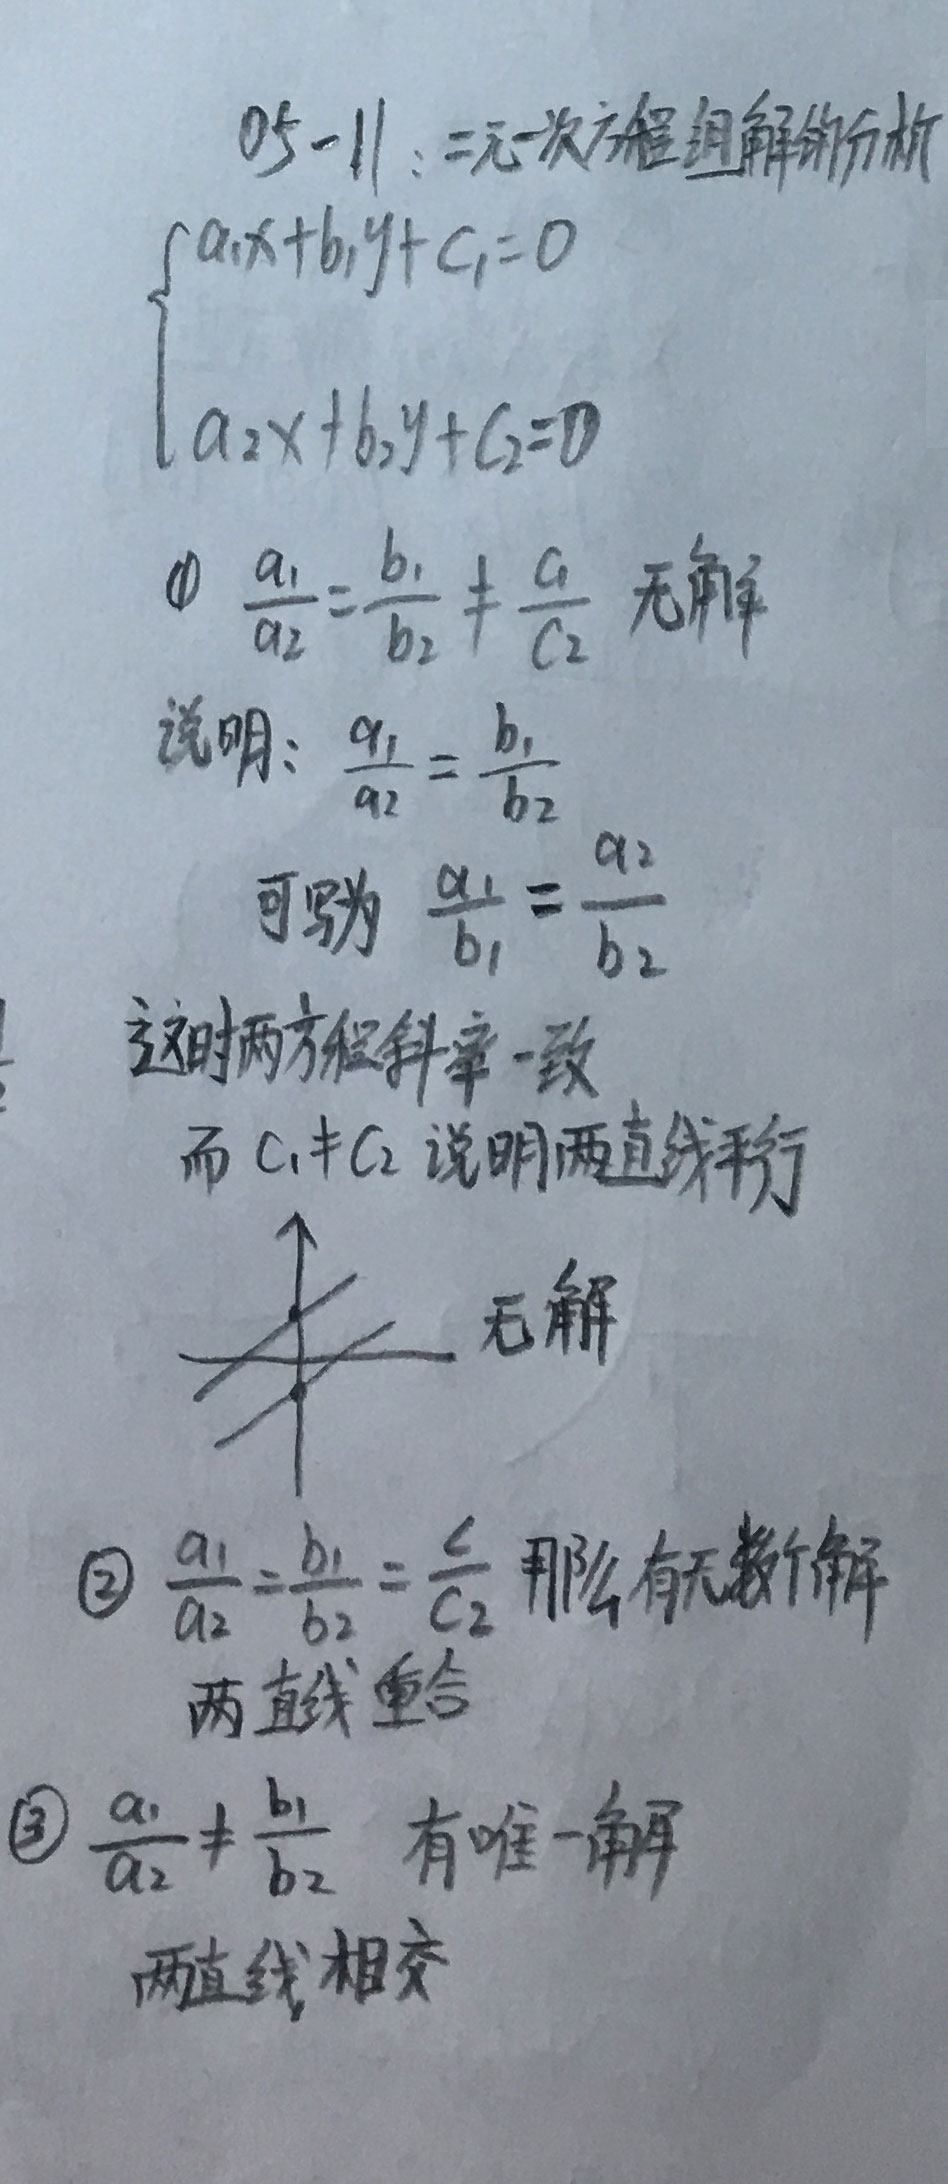 05-11：二元一次方程组解的分析
a₁x+b₁y+c₁=0
a₂x+b₂y+c₂=0
① a₁/a₂=b₁/b₂≠c₁/c₂ 无解
说明：a₁/a₂=b₁/b₂
可写为 a₁/b₁=a₂/b₂
这时两方程斜率一致
而 C₁≠C₂ 说明两直线平行
无解
② a₁/a₂=b₁/b₂=c/c₂ 那么有无数个解
两直线重合
③ a₁/a₂≠b₁/b₂ 有唯一解
两直线相交